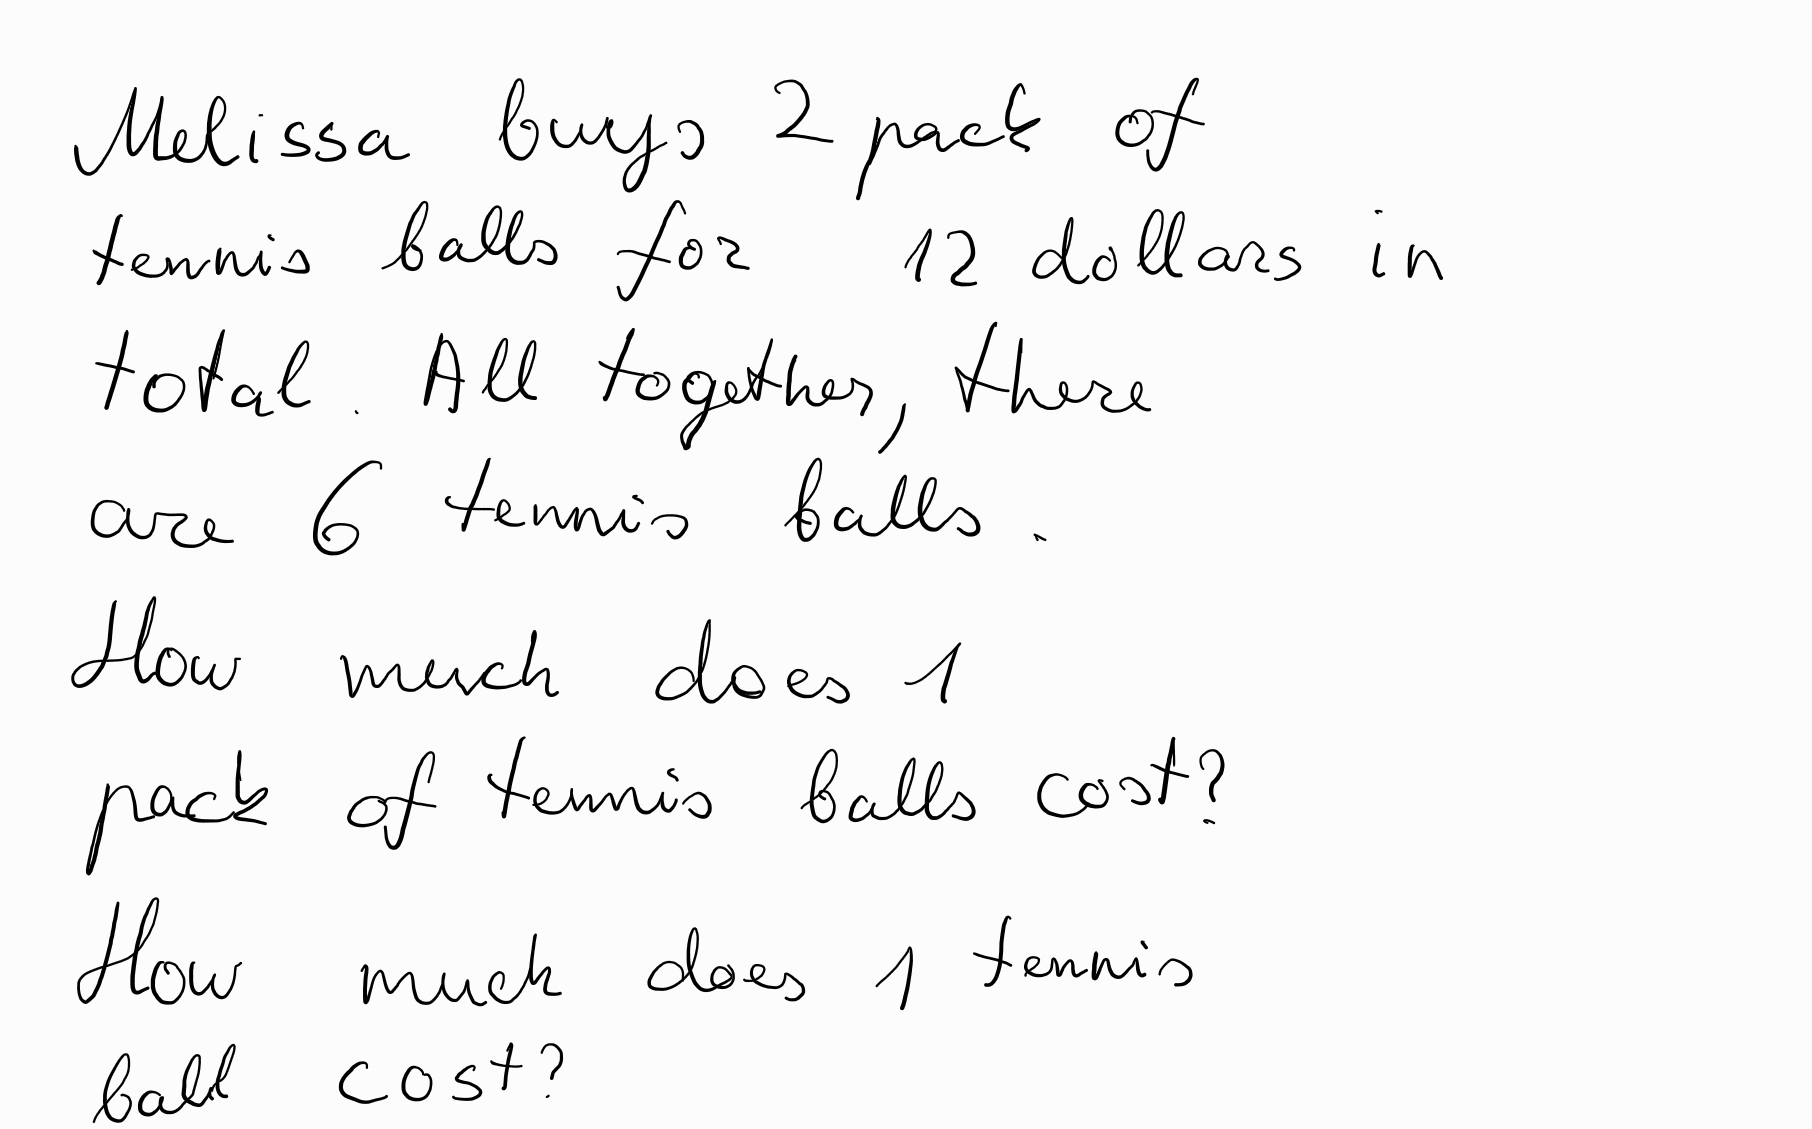 Melissa buys 2 pack of
tennis balls for 12 dollars in
total. All together, there
are 6 tennis balls.
How much does 1
pack of tennis balls cost?
How much does 1 tennis
ball cost?